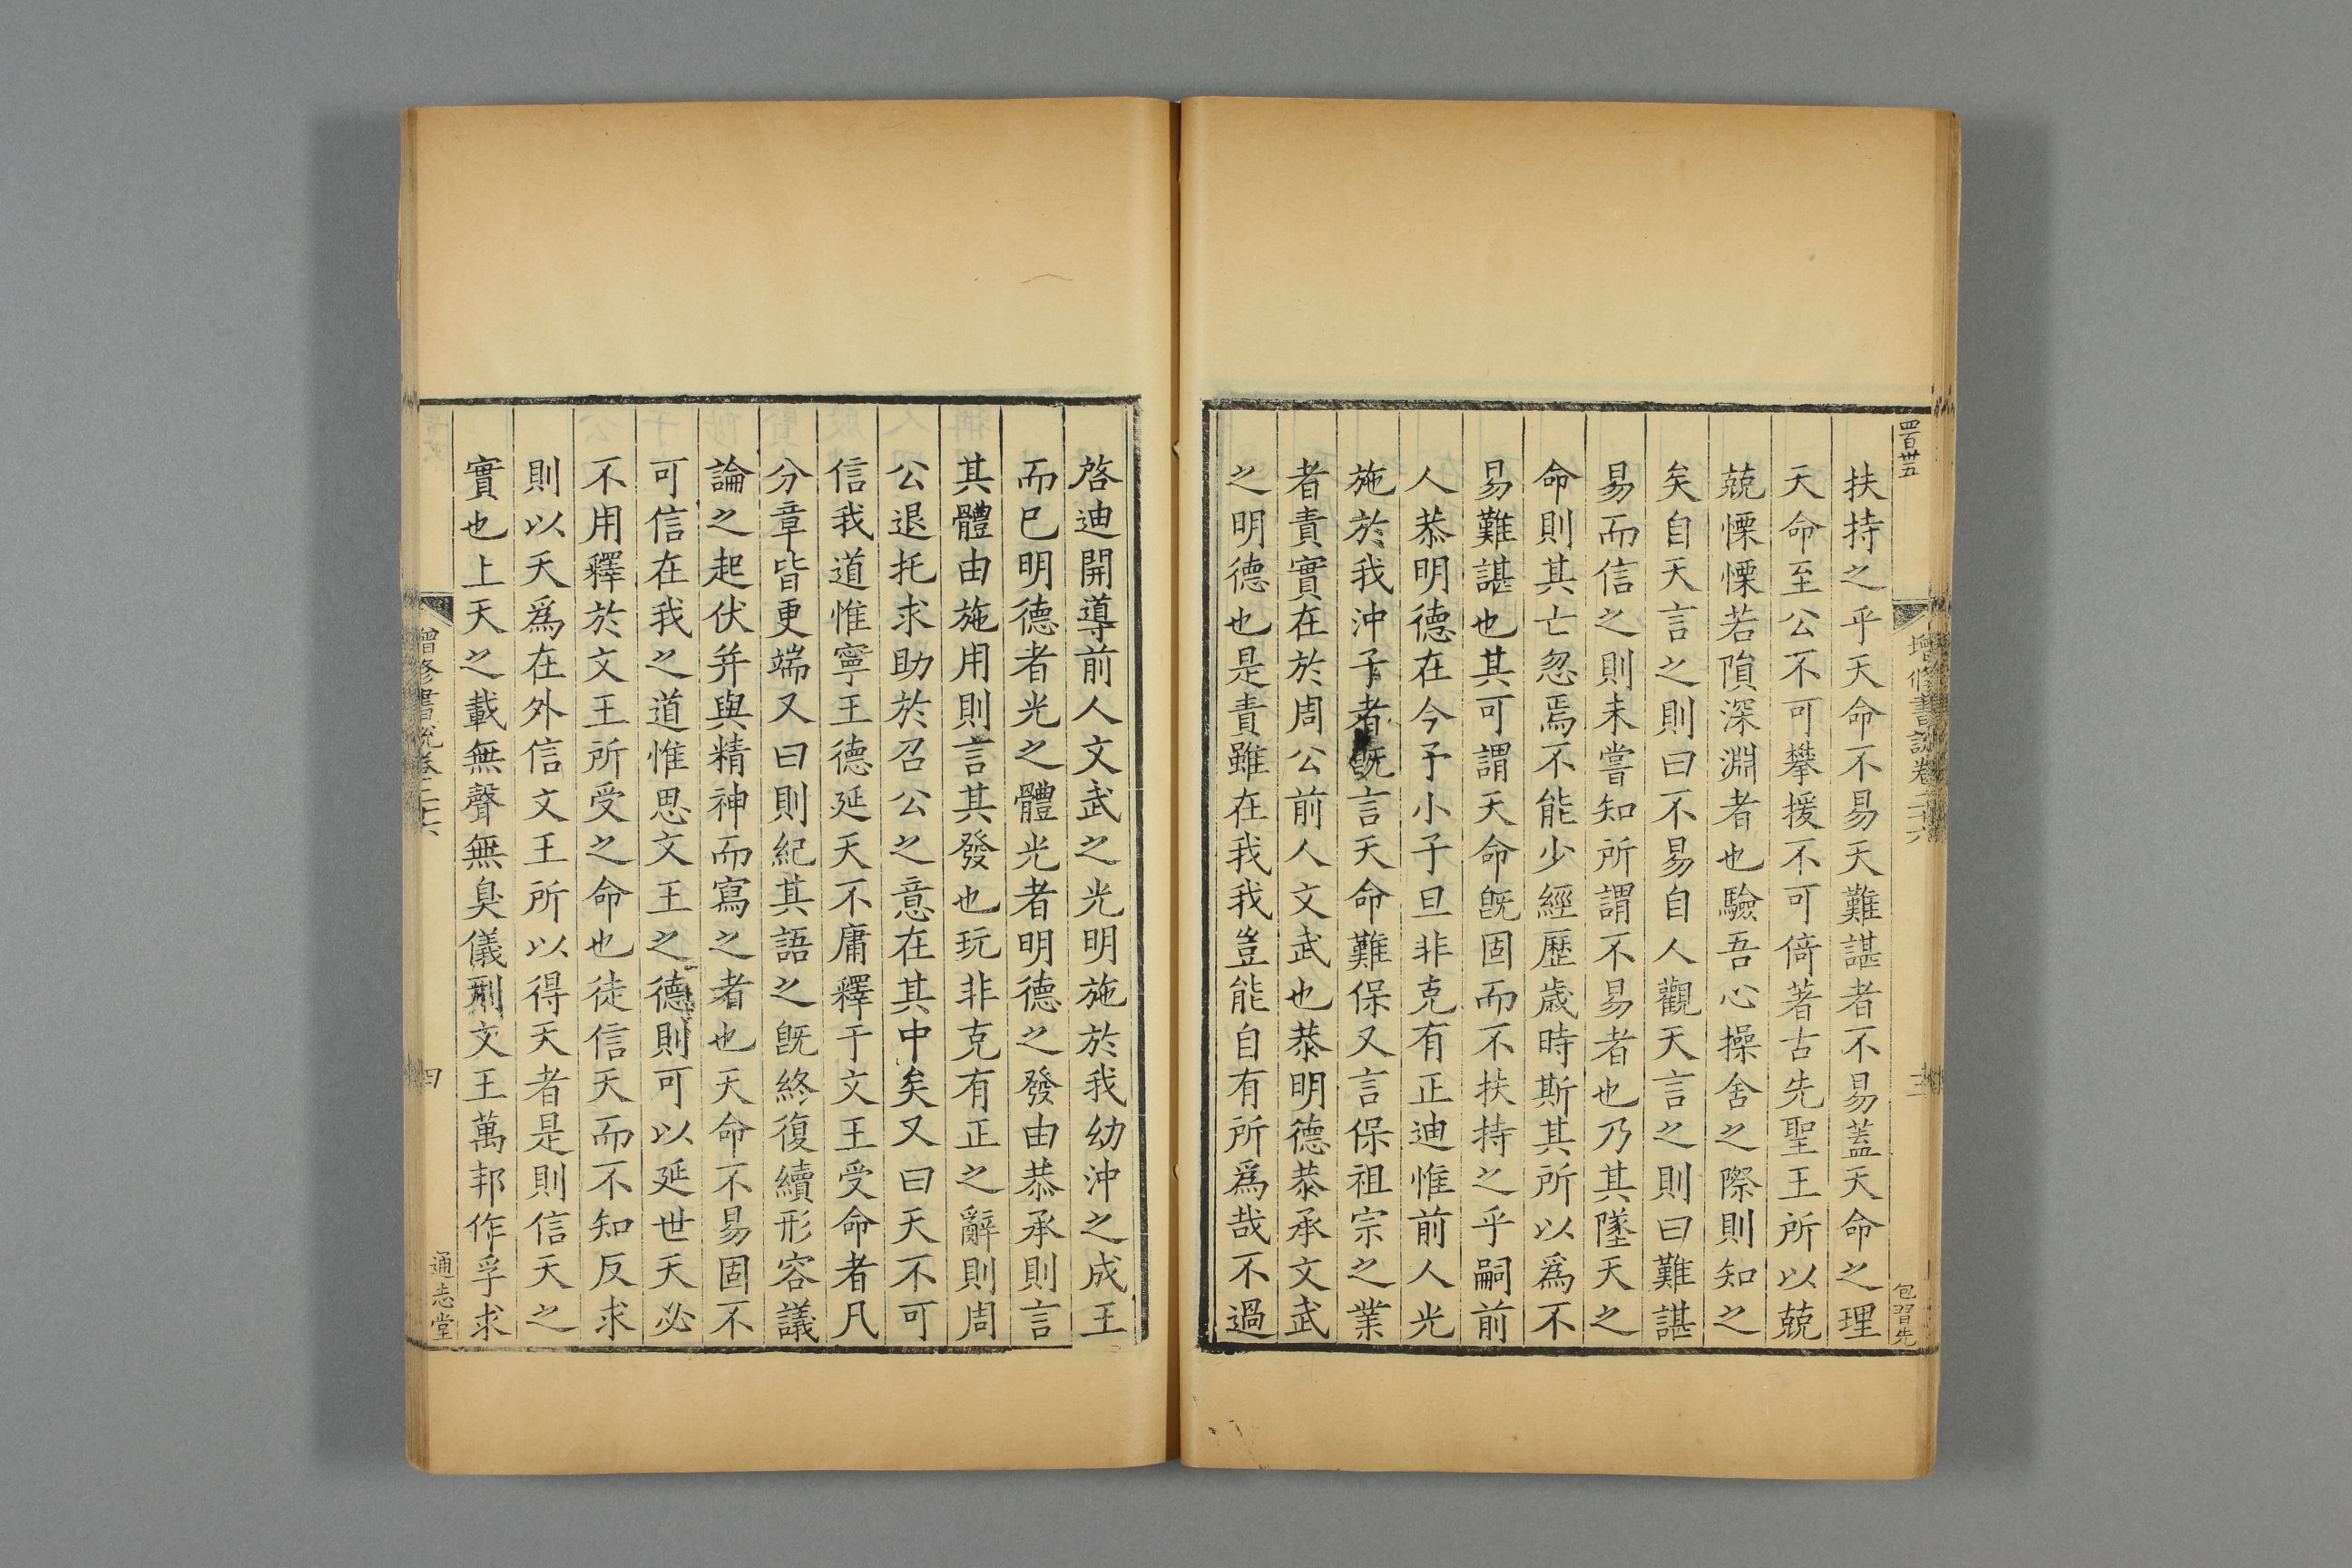 四百卅五
增修書說卷二十六
包習先
扶持之乎天命不易天難諶者不易蓋天命之理
天命至公不可攀援不可倚著古先聖王所以兢
兢慄慄若隕深淵者也驗吾心操舍之際則知之
矣自天言之則曰不易自人觀天言之則曰難諶
易而信之則未嘗知所謂不易者也乃其墜天之
命則其亡忽焉不能少經歷歲時斯其所以爲不
易難諶也其可謂天命旣固而不扶持之乎嗣前
人恭明德在今予小子旦非克有正迪惟前人光
施於我沖子者旣言天命難保又言保祖宗之業
者責實在於周公前人文武也恭明德恭承文武
之明德也是責雖在我我豈能自有所爲哉不過
啓迪開導前人文武之光明施於我幼沖之成王
而巳明德者光之體光者明德之發由恭承則言
其體由施用則言其發也玩非克有正之辭則周
公退托求助於召公之意在其中矣又曰天不可
信我道惟寧王德延天不庸釋于文王受命者凡
分章皆更端又曰則紀其語之旣終復續形容議
論之起伏并與精神而寫之者也天命不易固不
可信在我之道惟思文王之德則可以延世天必
不用釋於文王所受之命也徒信天而不知反求
則以天爲在外信文王所以得天者是則信天之
實也上天之載無聲無臭儀刑文王萬邦作孚求
增修書說卷二十六
通志堂